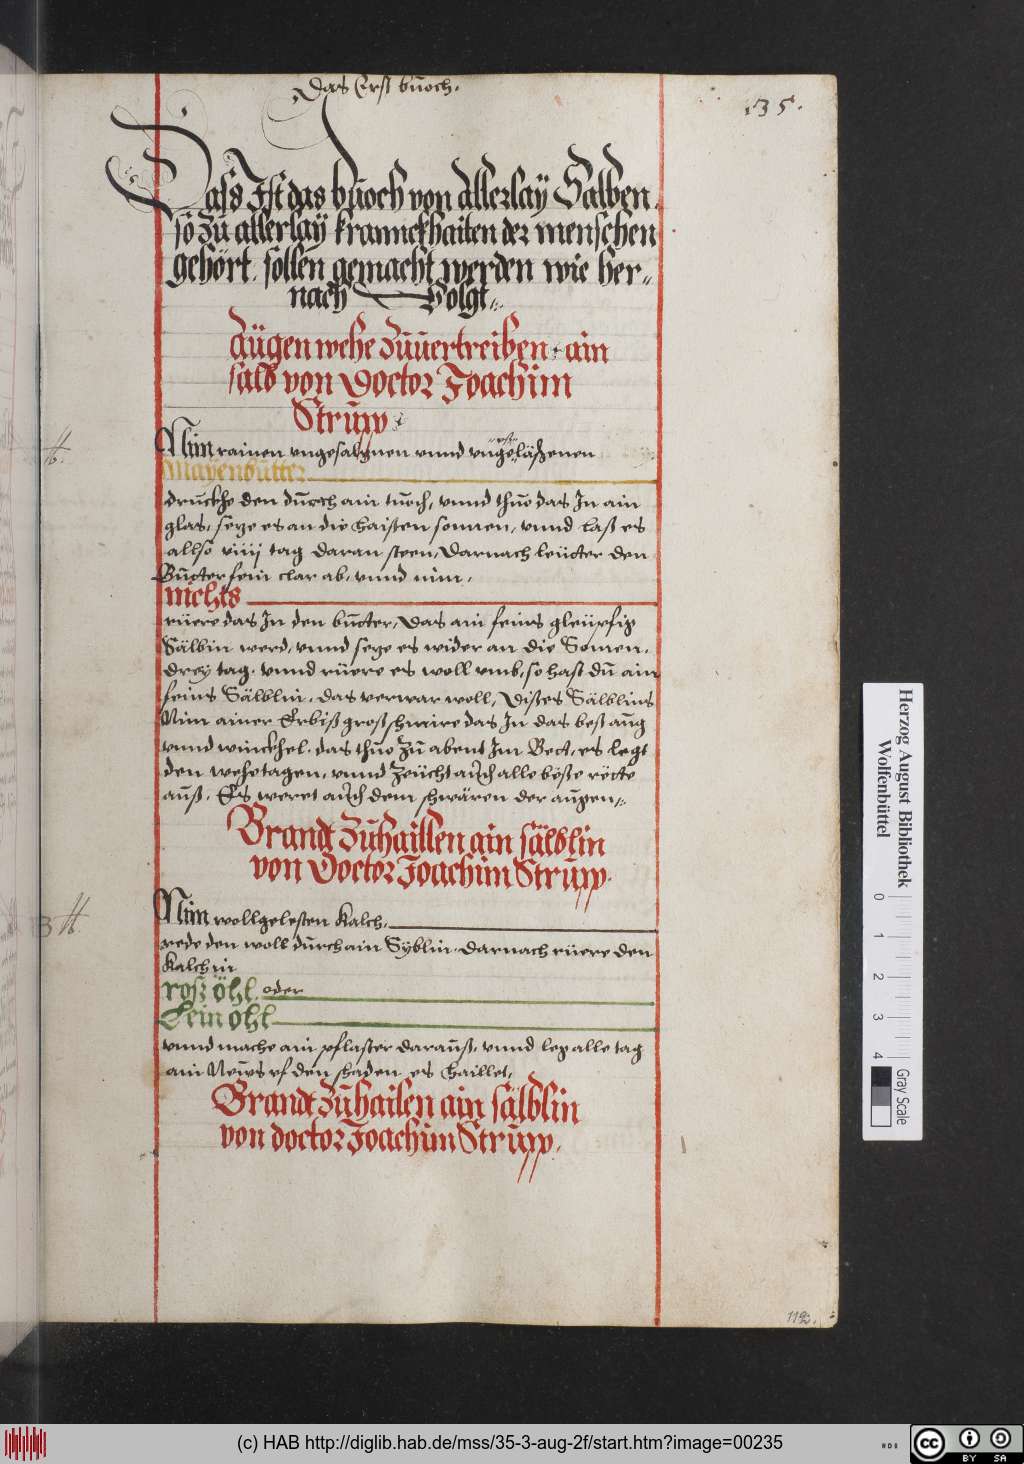 Das Erst buoch.
135.
Dass Ist das buoch von allerlaÿ Salben
so zu allerlaÿ kranncthaiten der menschen
gehört. sollen gemacht werden wie her„
nach Volgt„
Augen wehe zuuertreiben ain
salb von Doctor Joachim
Strupp
Nim rainen vngesalznen vnnd vngeläßenen
Mayenbutter
druckhe den durch ain tuoch, vnnd thuo das In ain
glas, seze es an die haisten sonnen, vnnd laß es
allso viiij tag daran steen, Darnach leütter den
Butter fein clar ab, vnnd nim,
nichts
rüere das In den butter, Das ain feins
Sälblin werd, vnnd seze es wider an die Sonnen,
drey tag, vnnd rüere es woll vmb, so hast du ain
feins Sälblin, das verwar woll, Dißes Sälblins
Nim ainer Erbiß groß schmire das In das best aug
vnnd winckhel, das thuo zu abent Im Bett, es legt
den wehetagen, vnnd zeücht auch alle böße rötte
auß, Es weret auch dem schwären der augen„
Brandt zuhaillen ain sälblin
von Doctor Joachim Strupp.
Nim wollgelesten Kalch,
rede den woll durch ain Syblin, darnach rüere den
Kalch in
roß öhl, oder
Lein öhl
vnnd mache ain pflaster darauß, vnnd leg alle tag
ain Neüws vf den shaden, es haillet,
Brandt zuhailen ain sälblin
von doctor Joachim Strupp,
Herzog August Bibliothek
Wolfenbüttel
0 1 2 3 4
Gray Scale
(c) HAB http://diglib.hab.de/mss/35-3-aug-2f/start.htm?image=00235
cc BY SA